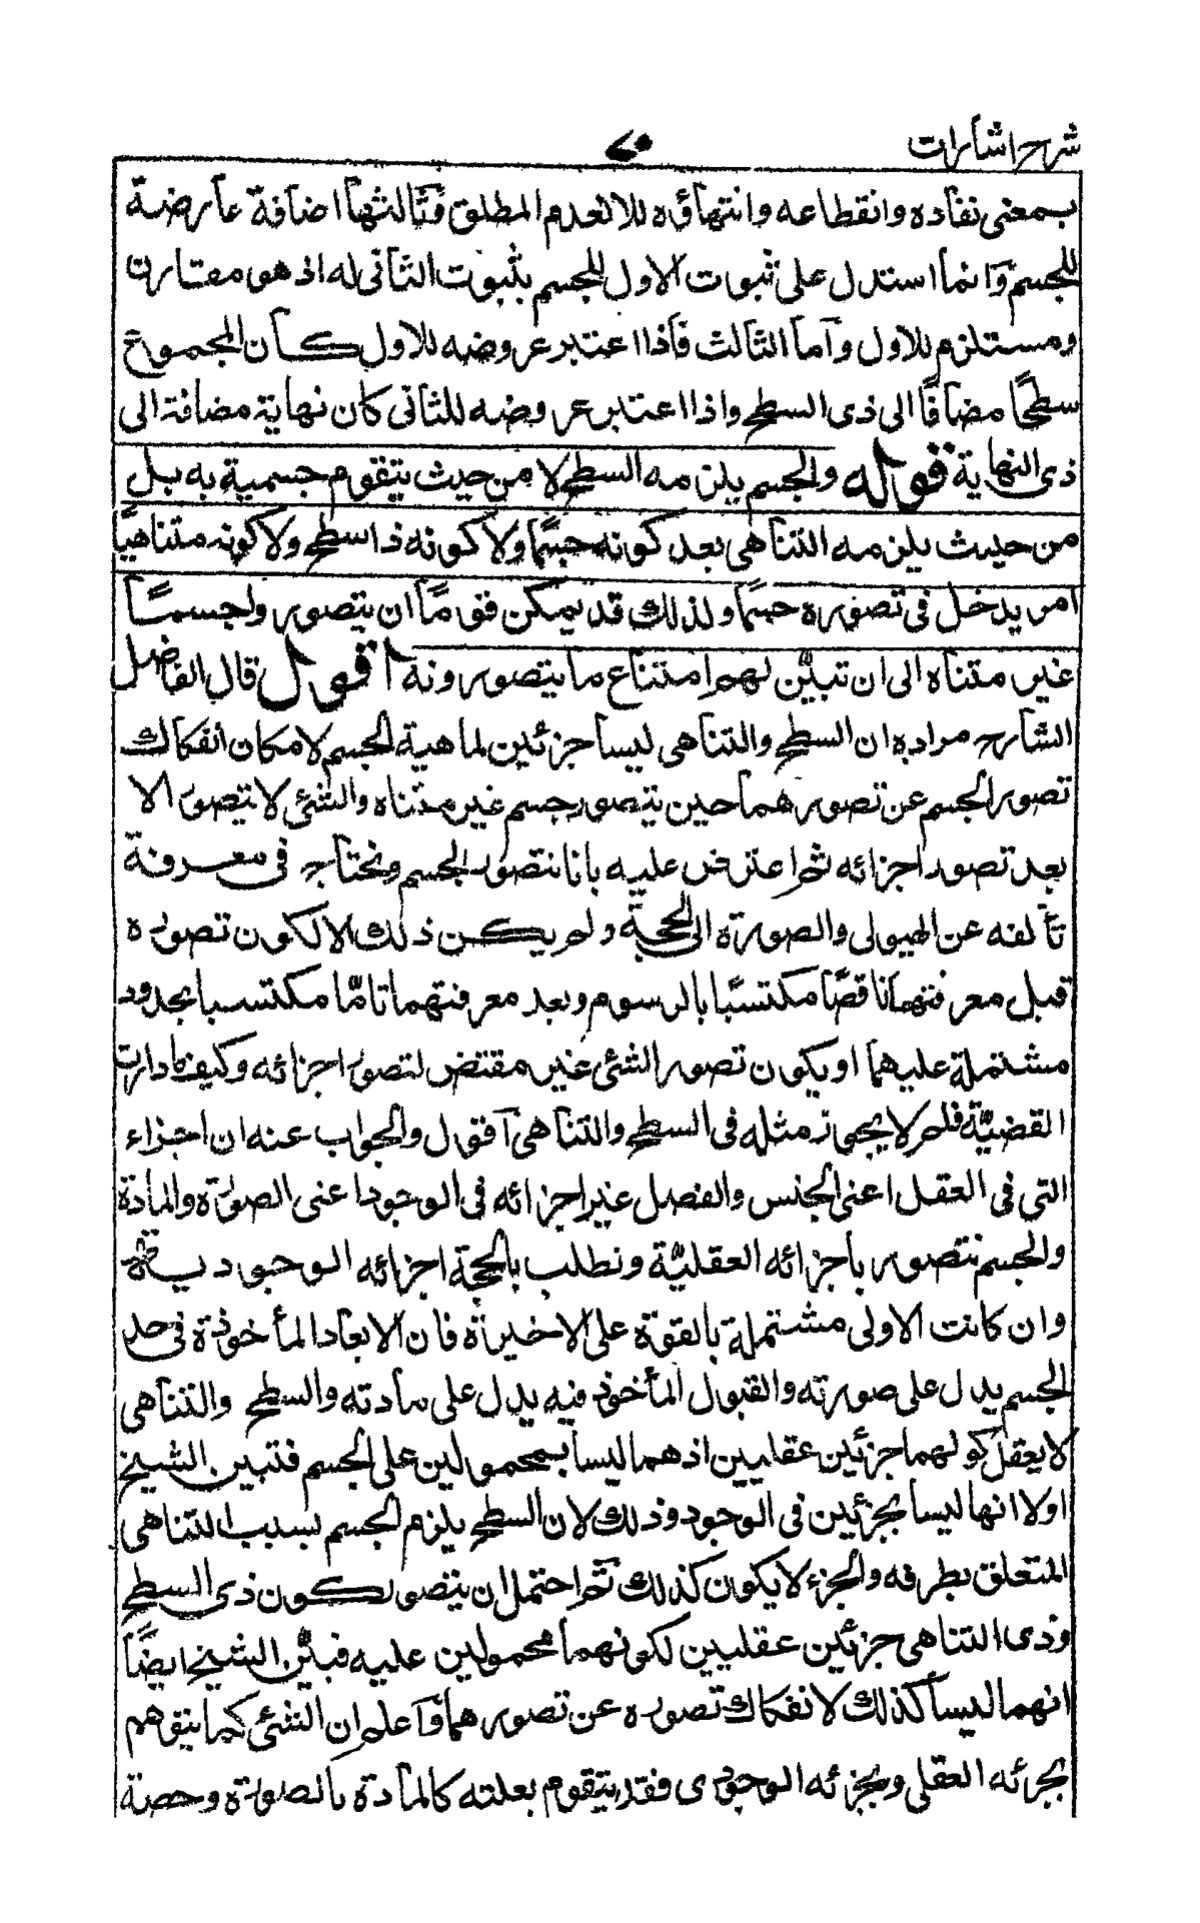 شرح اشارات
٧٠
بمعنى نفاده وانقطاعه وانتهاؤه للانعدم المطلق وثالثها اضافة عارضة
للجسم وانما استدل على ثبوت الاول للجسم بثبوت الثانى له اذ هو مقارن
ومستلزم للاول واما الثالث فاذا اعتبر عروضه للاول كان المجموع
سطحًا مضافًا الى ذى السطح واذا اعتبر عروضه للثانى كان نهاية مضافة الى
ذى النهاية قوله والجسم يلزمه السطح لا من حيث يتقوم جسمية به بل
من حيث يلزمه التناهى بعد كونه جسمًا ولا كونه ذا سطح ولا كونه متناهيًا
امر يدخل فى تصوره جسمًا ولذلك قد يمكن قومًا ان يتصور ولجسمًا
غير متناه الى ان تبيّن لهم امتناع ما يتصورونه اقول قال الفاضل
الشارح مراده ان السطح والتناهى ليسا جزئين لماهية الجسم لامكان انفكاك
تصور الجسم عن تصورهما حين يتصور جسم غير متناه والشئ لا يتصور الا
بعد تصور اجزائه ثم اعترض عليه بانا نتصور الجسم ونحتاج فى معرفة
تألفه عن الهيولى والصورة الى الحجة ولم يكن ذلك الا لكون تصوره
قبل معرفتهما ناقصًا مكتسبًا بالرسوم وبعد معرفتهما تامًّا مكتسبا بحدود
مشتملة عليهما او يكون تصور الشئ غير مقتض لتصور اجزائه وكيف ما دارت
القضيّة فلم لا يجوز مثله فى السطح والتناهى آقول والجواب عنه ان اجزاء
التى فى العقل اعنى الجنس والفصل غير اجزائه فى الوجود اعنى الصورة والمادة
والجسم نتصور باجزائه العقليّة ونطلب بالحجة اجزائه الوجودية
وان كانت الاولى مشتملة بالقوة على الاخيرة فان الابعاد المأخوذة فى حد
الجسم يدل على صورته والقبول المأخوذ فيه يدل على مادته والسطح والتناهى
لا يعقل كونهما جزئين عقليين اذ هما ليسا بمحمولين على الجسم فتبين الشيخ
اولا انها ليسا بجزئين فى الوجود وذلك لان السطح يلزم الجسم بسبب التناهى
المتعلق بطرفه والجزء لا يكون كذلك ثم احتمل ان يتصور كون ذى السطح
وذى التناهى جزئين عقليين لكونهما محمولين عليه فبيّن الشيخ ايضًا
انهما ليسا كذلك لانفكاك تصوره عن تصورهما وآعلم ان الشئ كما يتقوم
بجزئه العقلى وبجزئه الوجودى فقد يتقوم بعلته كالمادة بالصورة وحصة